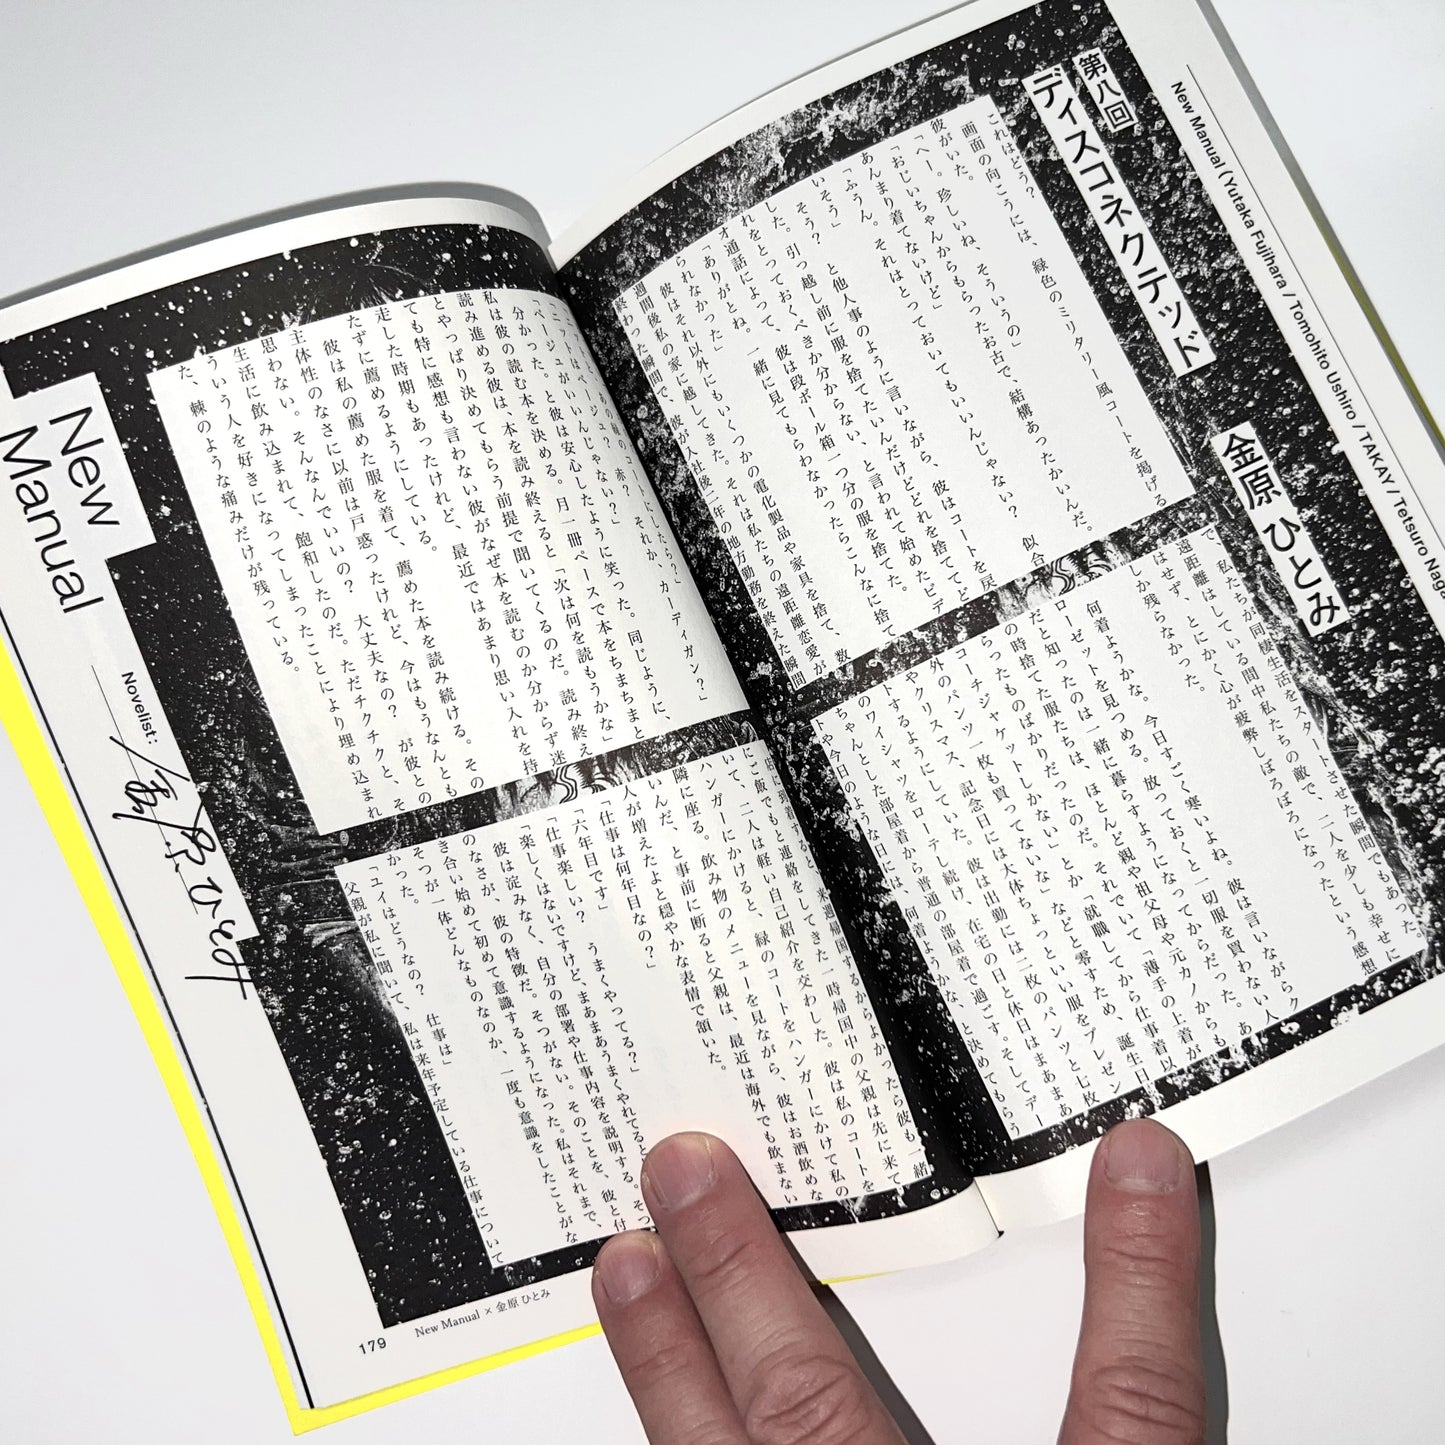 New Manual (Yutaka Fujihara / Tomohito Ushiro / TAKAY / Tetsuro Nag
第八回
ディスコネクテッド
金原 ひとみ
これはどう?
画面の向こうには、緑色のミリタリー風コートを掲げる
彼がいた。
「へー。珍しいね、そういうの」
「おじいちゃんからもらったお古で、結構あったかいんだ。
あんまり着てないけど」
「ふうん。それはとっておいてもいいんじゃない? 似合
いそう」
そう? と他人事のように言いながら、彼はコートを戻
した。引っ越し前に服を捨てたいんだけどどれを捨ててど
れをとっておくべきか分からない、と言われて始めたビデ
オ通話によって、彼は段ボール箱一つ分の服を捨てた。
「ありがとね。一緒に見てもらわなかったらこんなに捨て
られなかった」
彼はそれ以外にもいくつかの電化製品や家具を捨て、数
週間後私の家に越してきた。彼が入社後二年の地方勤務を終えた瞬間
終わった瞬間で、それは私たちの遠距離恋愛が
で、私たちが同棲生活をスタートさせた瞬間でもあった。
遠距離はしている間中私たちの敵で、二人を少しも幸せに
はせず、とにかく心が疲弊しぼろぼろになったという感想
しか残らなかった。
何着ようかな。今日すごく寒いよね。彼は言いながらク
ローゼットを見つめる。放っておくと一切服を買わない人
だと知ったのは一緒に暮らすようになってからだった。あ
の時捨てた服たちは、ほとんど親や祖父母や元カノからも
らったものばかりだったのだ。それでいて「薄手の上着が
コーチジャケットしかない」とか「就職してから仕事着以
外のパンツ一枚も買ってないな」などと零すため、誕生日
やクリスマス、記念日には大体ちょっといい服をプレゼン
トするようにしていた。彼は出勤には二枚のパンツと七枚
のワイシャツをローテし続け、在宅の日と休日はまあまあ
ちゃんとした部屋着から普通の部屋着で過ごす。そしてデー
トや今日のような日には、何着ようかな、と決めてもらう
カーディガン?」
「ニットはベージュ? 赤?」
「ベージュがいいんじゃない?」
分かった、と彼は安心したように笑った。同じように、
私は彼の読む本を決める。月一冊ペースで本をちまちまと
読み進める彼は、本を読み終えると「次は何を読もうかな」
とやっぱり決めてもらう前提で聞いてくるのだ。読み終え
ても特に感想も言わない彼がなぜ本を読むのか分からず迷
走した時期もあったけれど、最近ではあまり思い入れを持
たずに薦めるようにしている。
彼は私の薦めた服を着て、薦めた本を読み続ける。その
主体性のなさに以前は戸惑ったけれど、今はもうなんとも
思わない。そんなんでいいの? 大丈夫なの? が彼との
生活に飲み込まれて、飽和したのだ。ただチクチクと、そ
ういう人を好きになってしまったことにより埋め込まれ
た、棘のような痛みだけが残っている。
いて、二人は軽い自己紹介を交わした。彼は私のコートを
ハンガーにかけると、緑のコートをハンガーにかけて私の
隣に座る。飲み物のメニューを見ながら、彼はお酒飲めな
いんだ、と事前に断ると父親は、最近は海外でも飲まない
人が増えたよと穏やかな表情で頷いた。
「仕事は何年目なの?」
「六年目です」
「仕事楽しい? うまくやってる?」
「楽しくはないですけど、まあまあうまくやれてると
彼は淀みなく、自分の部署や仕事内容を説明する。そつ
のなさが、彼の特徴だ。そつがない。そのことを、彼と付
き合い始めて初めて意識するようになった。私はそれまで、
そつが一体どんなものなのか、一度も意識をしたことがな
かった。
「ユイはどうなの? 仕事は」
父親が私に聞いて、私は来年予定している仕事について
New
Manual
Novelist:
金原ひとみ
179
New Manual × 金原 ひとみ